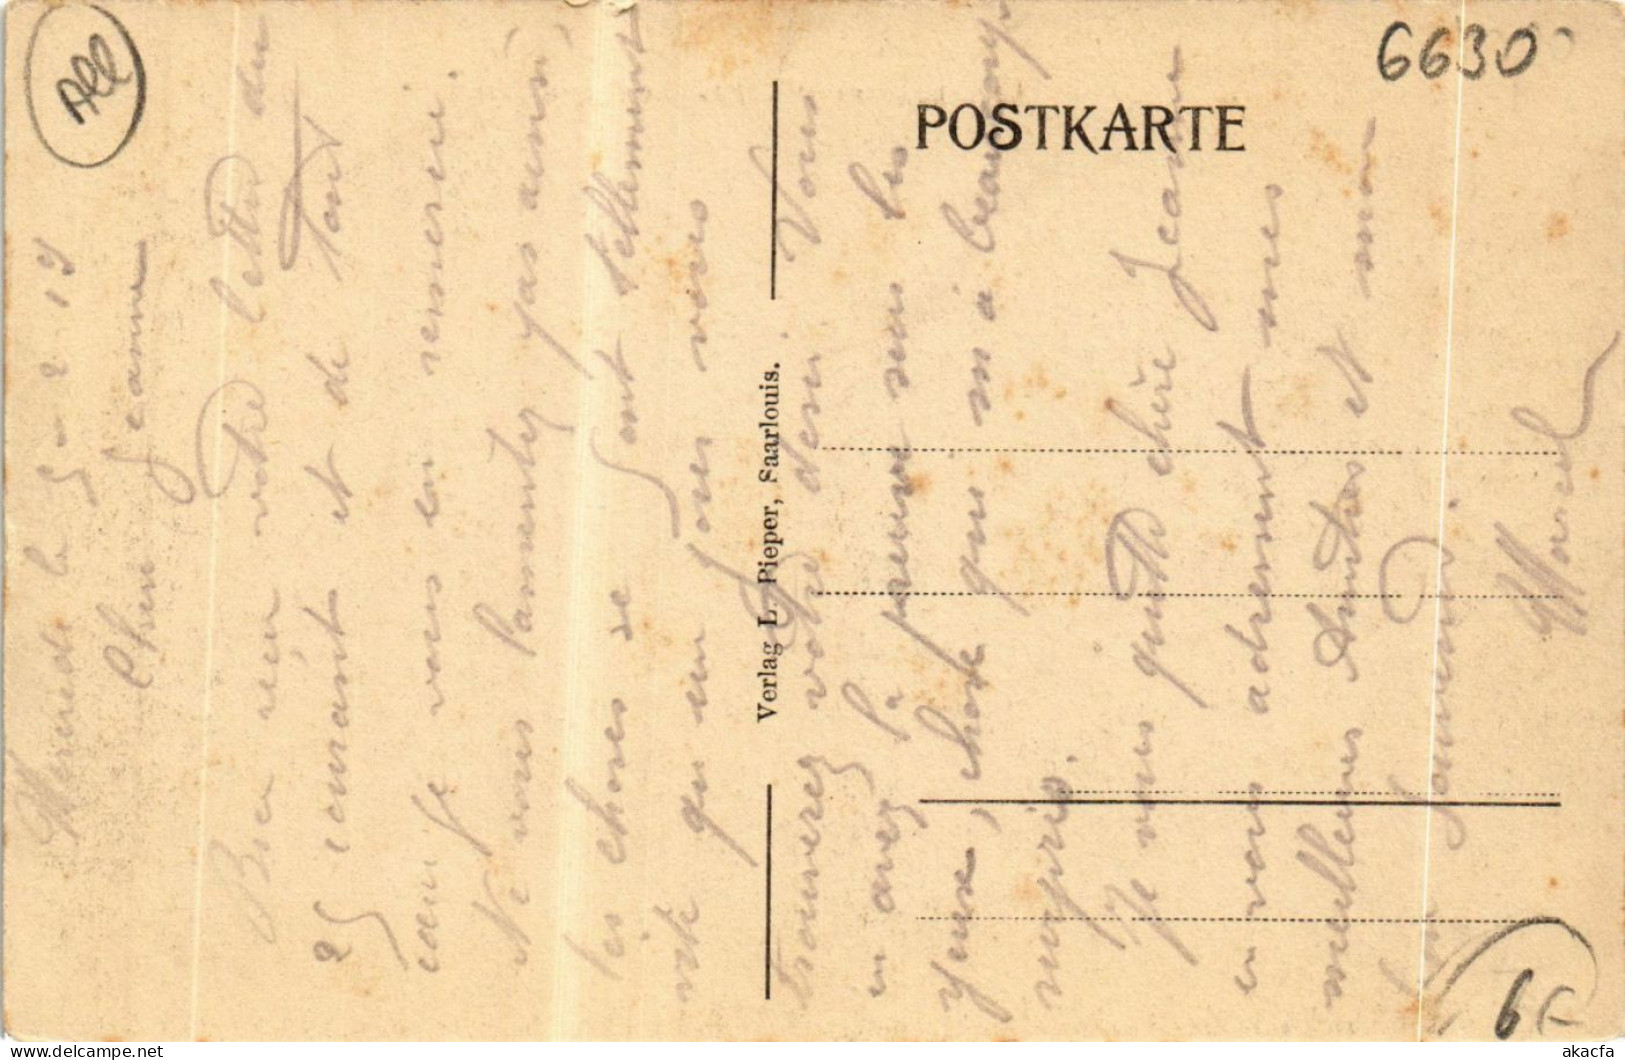 All
6630
POSTKARTE
Verlag L. Pieper, Saarlouis.
le 5-2-19
Chère Jeanne
Bien reçu votre lettre du
25 courant et de tout
cœur je vous en remercie.
Ne vous tourmentez pas ainsi,
les choses se sont tellement
vite qu'un jour vous
trouverez votre Vous
en avez la preuve sous les
yeux, chose qui m'a beaucoup
surpris.
Je vous quitte chère Jeanne
en vous adressant mes
meilleures Amitiés et mon
bon souvenir.
Marcel
6F
akacfa